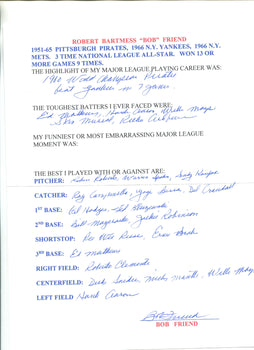 ROBERT BARTMESS "BOB" FRIEND
1951-65 PITTSBURGH PIRATES, 1966 N.Y. YANKEES, 1966 N.Y.
METS. 3 TIME NATIONAL LEAGUE ALL-STAR. WON 13 OR
MORE GAMES 9 TIMES.
THE HIGHLIGHT OF MY MAJOR LEAGUE PLAYING CAREER WAS:
1960 World Champion Pirates
beat Yankees in 7 games
THE TOUGHEST BATTERS I EVER FACED WERE:
Ed Mathews, Hank Aaron, Willie Mays
Stan Musial, Richie Ashburn
MY FUNNIEST OR MOST EMBARRASSING MAJOR LEAGUE
MOMENT WAS:
THE BEST I PLAYED WITH OR AGAINST ARE:
PITCHER: Robin Roberts, Warren Spahn, Sandy Koufax
CATCHER: Roy Campanella, Yogi Berra, Del Crandall
1ST BASE: Gil Hodges, Ted Kluszewski
2ND BASE: Bill Mazeroski, Jackie Robinson
SHORTSTOP: Pee Wee Reese, Ernie Banks
3RD BASE: Ed Mathews
RIGHT FIELD: Roberto Clemente
CENTERFIELD: Duke Snider, Mickey Mantle, Willie Mays
LEFT FIELD Hank Aaron
Bob Friend
BOB FRIEND